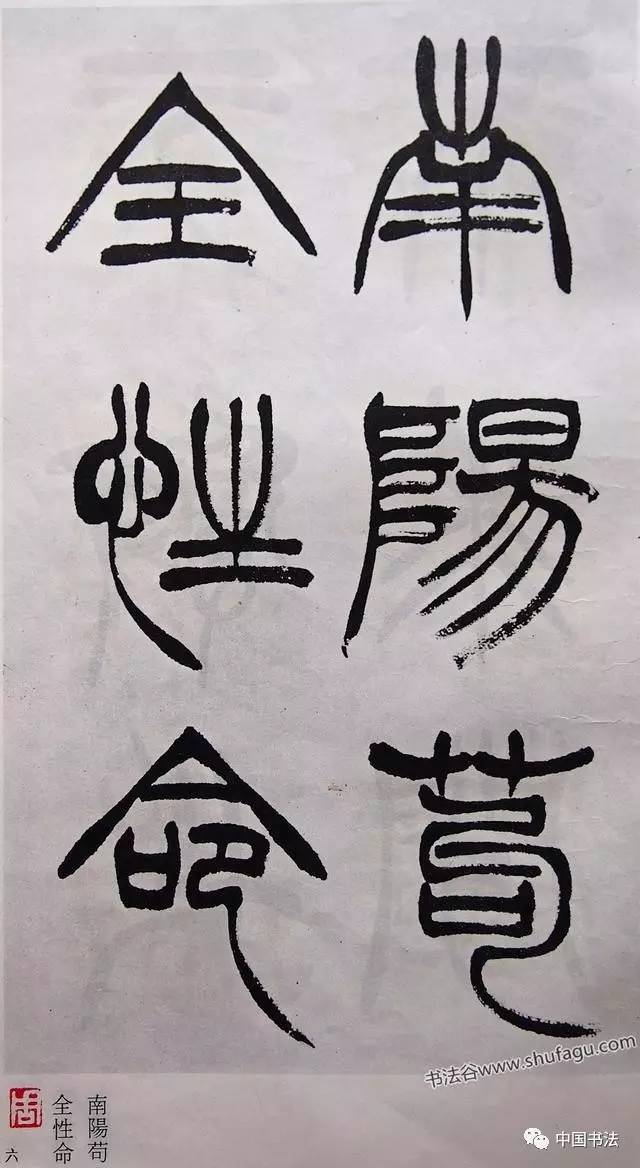 南陽苟
全性命
书法谷www.shufagu.com
南陽苟
全性命
六
中国书法